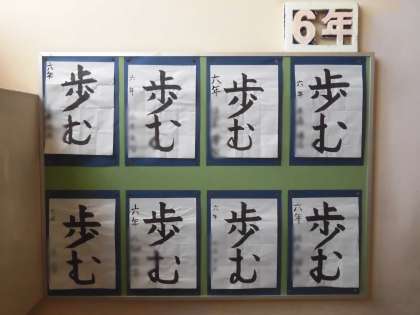 6年
歩む
六年
歩む
六年
歩む
六年
歩む
六年
歩む
歩む
六年
歩む
六年
歩む
六年